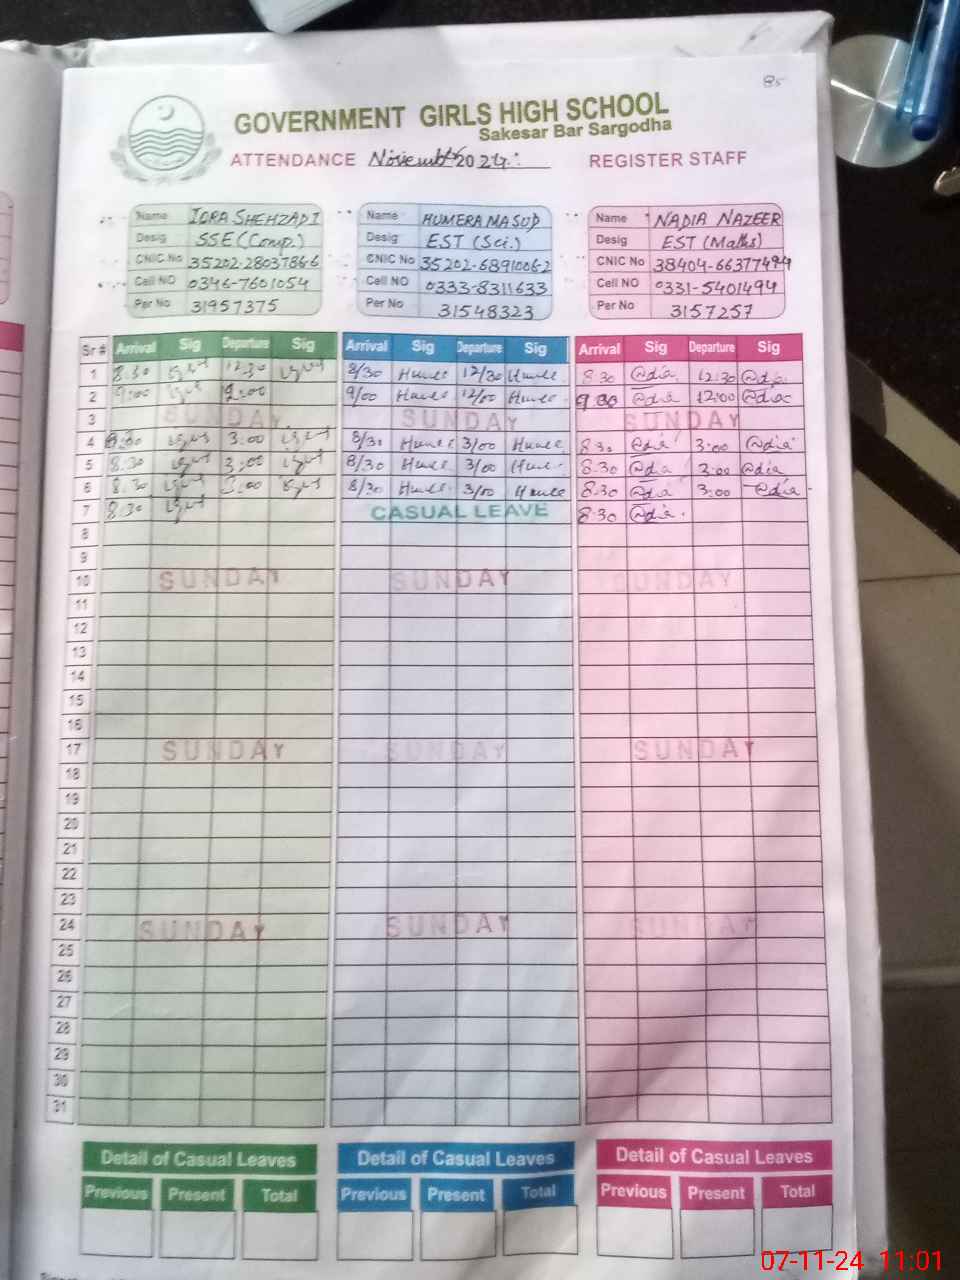 85
GOVERNMENT GIRLS HIGH SCHOOL
Sakesar Bar Sargodha
ATTENDANCE November 2024 REGISTER STAFF
Name IQRA SHEHZADI Name HUMERA MASUD Name NADIA NAZEER
Desig SSE (Comp.) Desig EST (Sci.) Desig EST (Maths)
CNIC No 35202-2803786-6 CNIC No 35202-6891006-2 CNIC No 38404-6637749-4
Cell NO 0346-7601054 Cell NO 0333-8311633 Cell NO 0331-5401494
Per No 31957375 Per No 31548323 Per No 3157257
Sr # Arrival Sig Departure Sig Arrival Sig Departure Sig Arrival Sig Departure Sig
1 8:30 12:30 8/30 12/30 8:30 12:30
2 9:00 9/00 12/00 9:30 12:00
3 SUNDAY SUNDAY SUNDAY
4 8:30 3:00 8/30 3/00 8:30 3:00
5 8:30 3:00 8/30 3/00 8:30
6 8:30 3:00 8/30 3/00 8:30 3:00
7 8:30 CASUAL LEAVE 8:30
8
9
10 SUNDAY SUNDAY SUNDAY
11
12
13
14
15
16
17 SUNDAY SUNDAY SUNDAY
18
19
20
21
22
23
24 SUNDAY SUNDAY SUNDAY
25
26
27
28
29
30
31
Detail of Casual Leaves Detail of Casual Leaves Detail of Casual Leaves
Previous Present Total Previous Present Total Previous Present Total
07-11-24 11:01